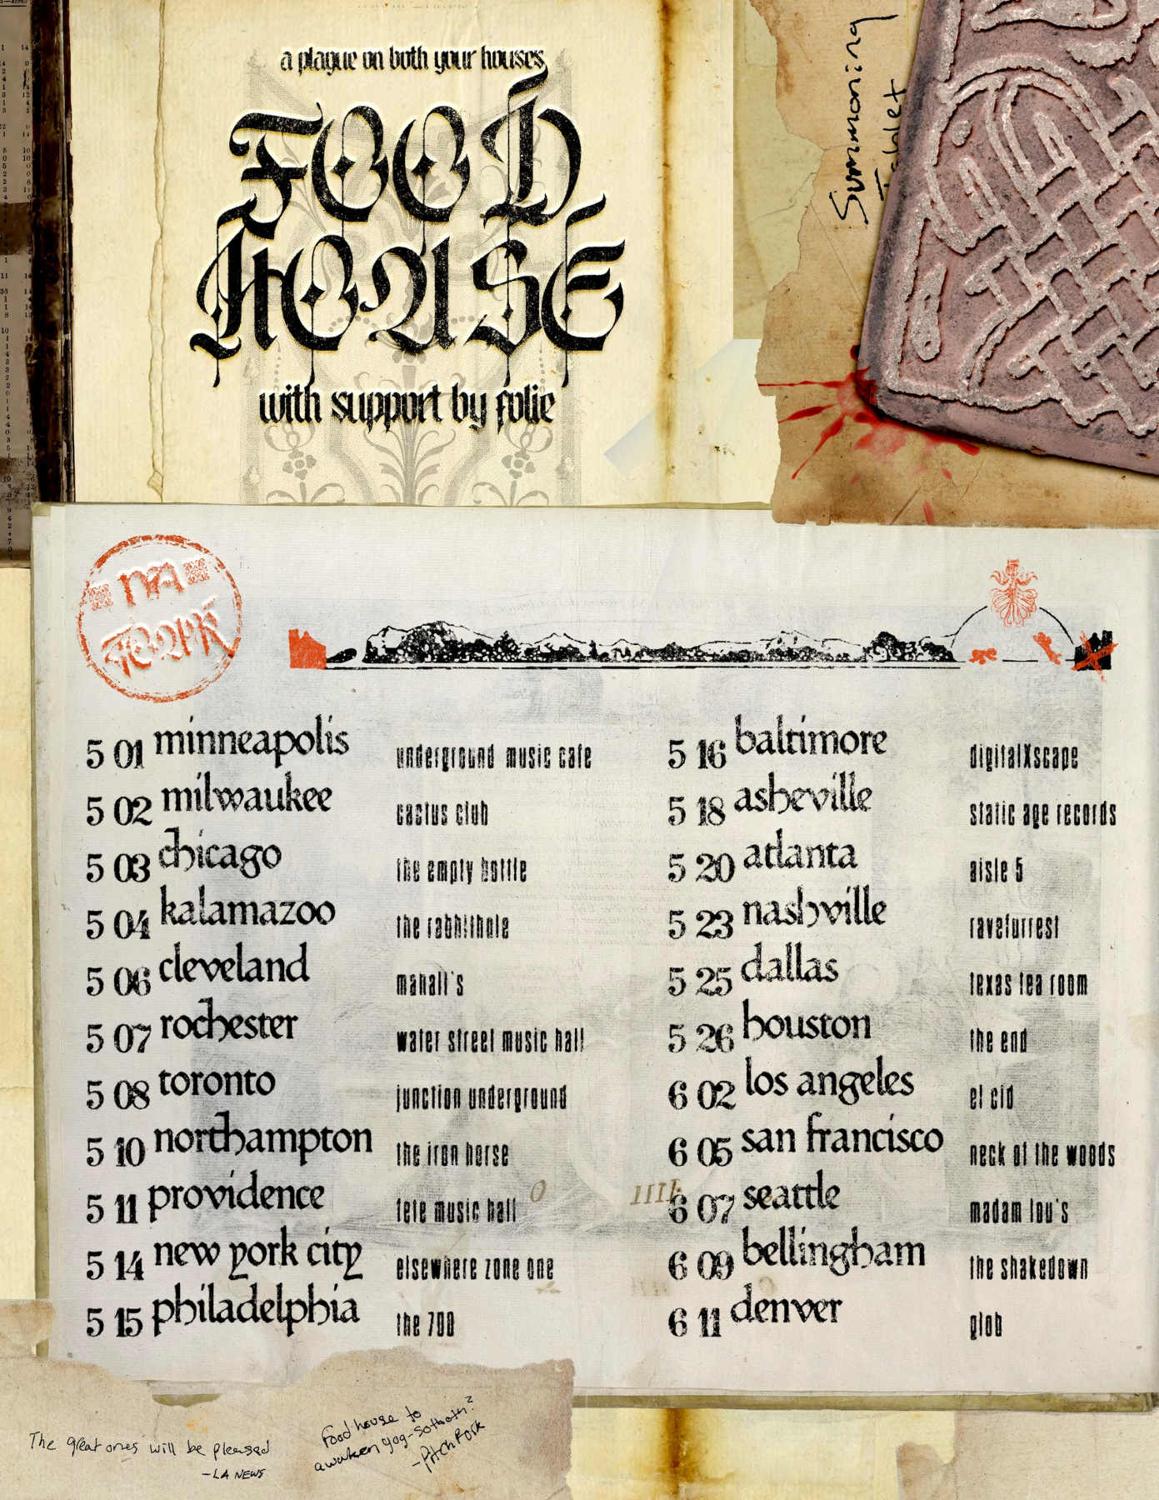 a plague on both your houses
FOOD
HOUSE
with support by folie
Summoning
Tablet
NA
TOUR
5 01 minneapolis underground music cafe
5 02 milwaukee cactus club
5 03 chicago the empty bottle
5 04 kalamazoo the rabbithole
5 06 cleveland mahall's
5 07 rochester water street music hall
5 08 toronto junction underground
5 10 northampton the iron horse
5 11 providence fete music hall
5 14 new york city elsewhere zone one
5 15 philadelphia the 700
5 16 baltimore digitalXscape
5 18 asheville static age records
5 20 atlanta aisle 5
5 23 nashville ravefurrest
5 25 dallas texas tea room
5 26 houston the end
6 02 los angeles el cid
6 05 san francisco neck of the woods
6 07 seattle madam lou's
6 09 bellingham the shakedown
6 11 denver glob
The great ones will be pleased
-LA NEWS
Food house to
awaken yog-sothoth?
-Pitchfork